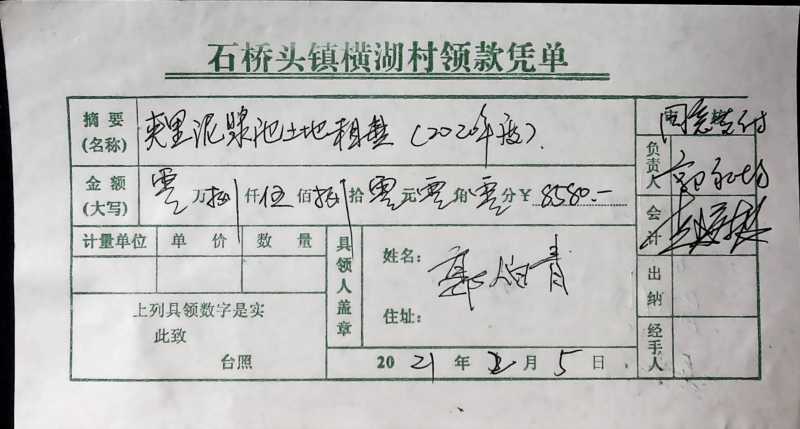 石桥头镇横湖村领款凭单
摘要(名称) 夹里泥浆池土地租费(2020年度).
同意暂付
金额(大写) 零万捌仟伍佰捌拾零元零角零分¥8580.—
负责人
会计
计量单位 单价 数量
具领人盖章
姓名: 郭伯青
住址:
上列具领数字是实
此致
台照
出纳
经手人
2021年2月5日